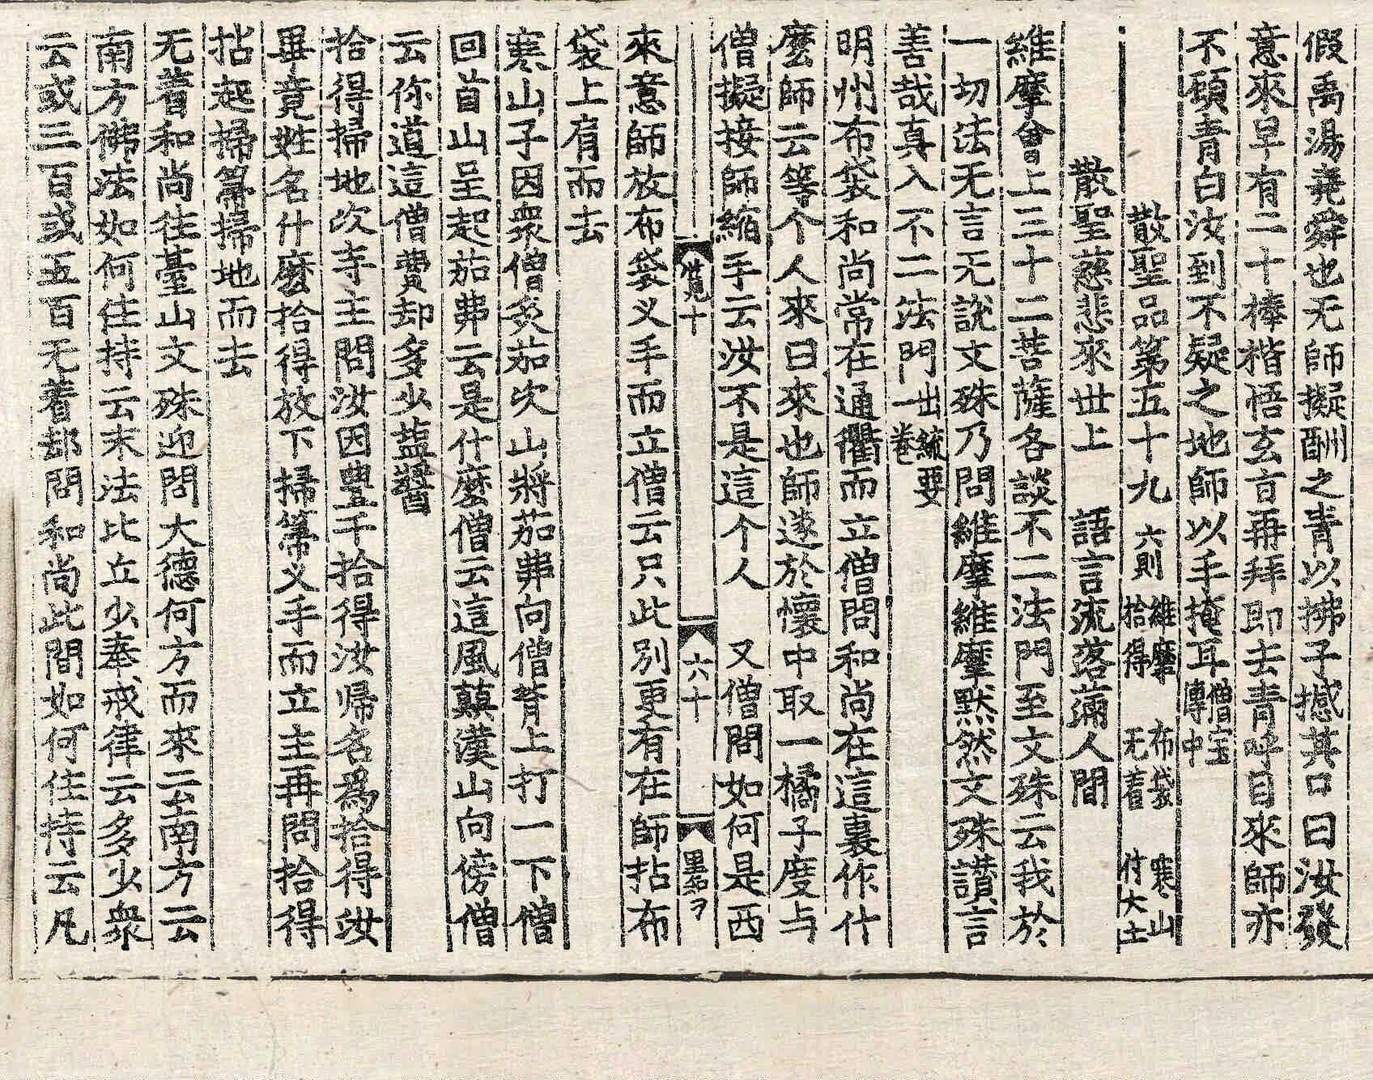 假禹湯堯舜也无師擬酬之青以拂子撼其口曰汝發
意來早有二十棒楷悟玄旨再拜即去青呼且來師亦
不顧青曰汝到不疑之地師以手掩耳僧宝傳中
散聖品第五十九 六則 維摩 布袋 寒山 拾得 无着 付大士
散聖慈悲來世上 語言流落滿人間
維摩會上三十二菩薩各談不二法門至文殊云我於
一切法无言无說文殊乃問維摩維摩默然文殊讃言
善哉真入不二法門出統要一卷
明州布袋和尚常在通衢而立僧問和尚在這裏作什
麽師云等个人來曰來也師遂於懷中取一橘子度与
僧擬接師縮手云汝不是這个人 又僧問如何是西
六十
來意師放布袋叉手而立僧云只此別更有在師拈布
袋上肩而去
寒山子因衆僧炙茄次山將茄弗向僧背上打一下僧
回首山呈起茄弗云是什麽僧云這風顛漢山向傍僧
云你道這僧費却多少塩醬
拾得掃地次寺主問汝因豊干拾得汝帰名爲拾得汝
畢竟姓名什麽拾得放下掃箒叉手而立主再問拾得
拈起掃箒掃地而去
无着和尚往臺山文殊迎問大德何方而來云南方云
南方佛法如何住持云末法比丘少奉戒律云多少衆
云或三百或五百无着却問和尚此間如何住持云凡